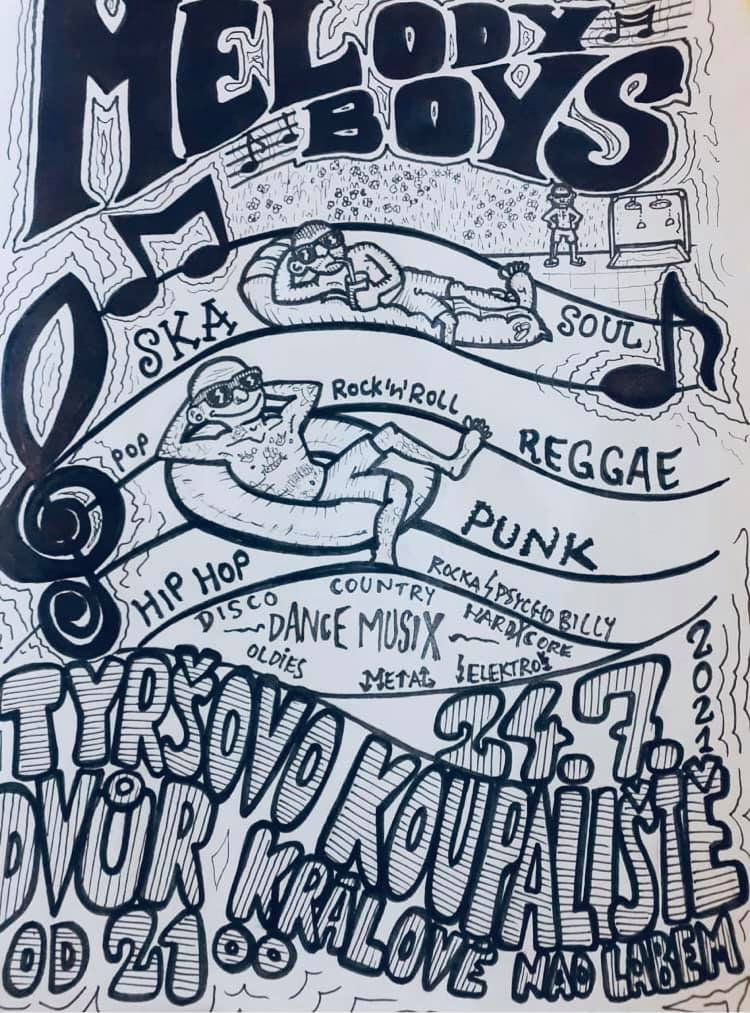 MELODY
BOYS
SKA
SOUL
ROCK'N'ROLL
POP
REGGAE
PUNK
HIP HOP
DISCO
COUNTRY
ROCKA PSYCHO BILLY
DANCE MUSIX
HARDCORE
OLDIES
METAL
ELEKTRO
2021
24.7.
TYRŠOVO KOUPALIŠTĚ
DVŮR KRÁLOVÉ NAD LABEM
OD 21⁰⁰